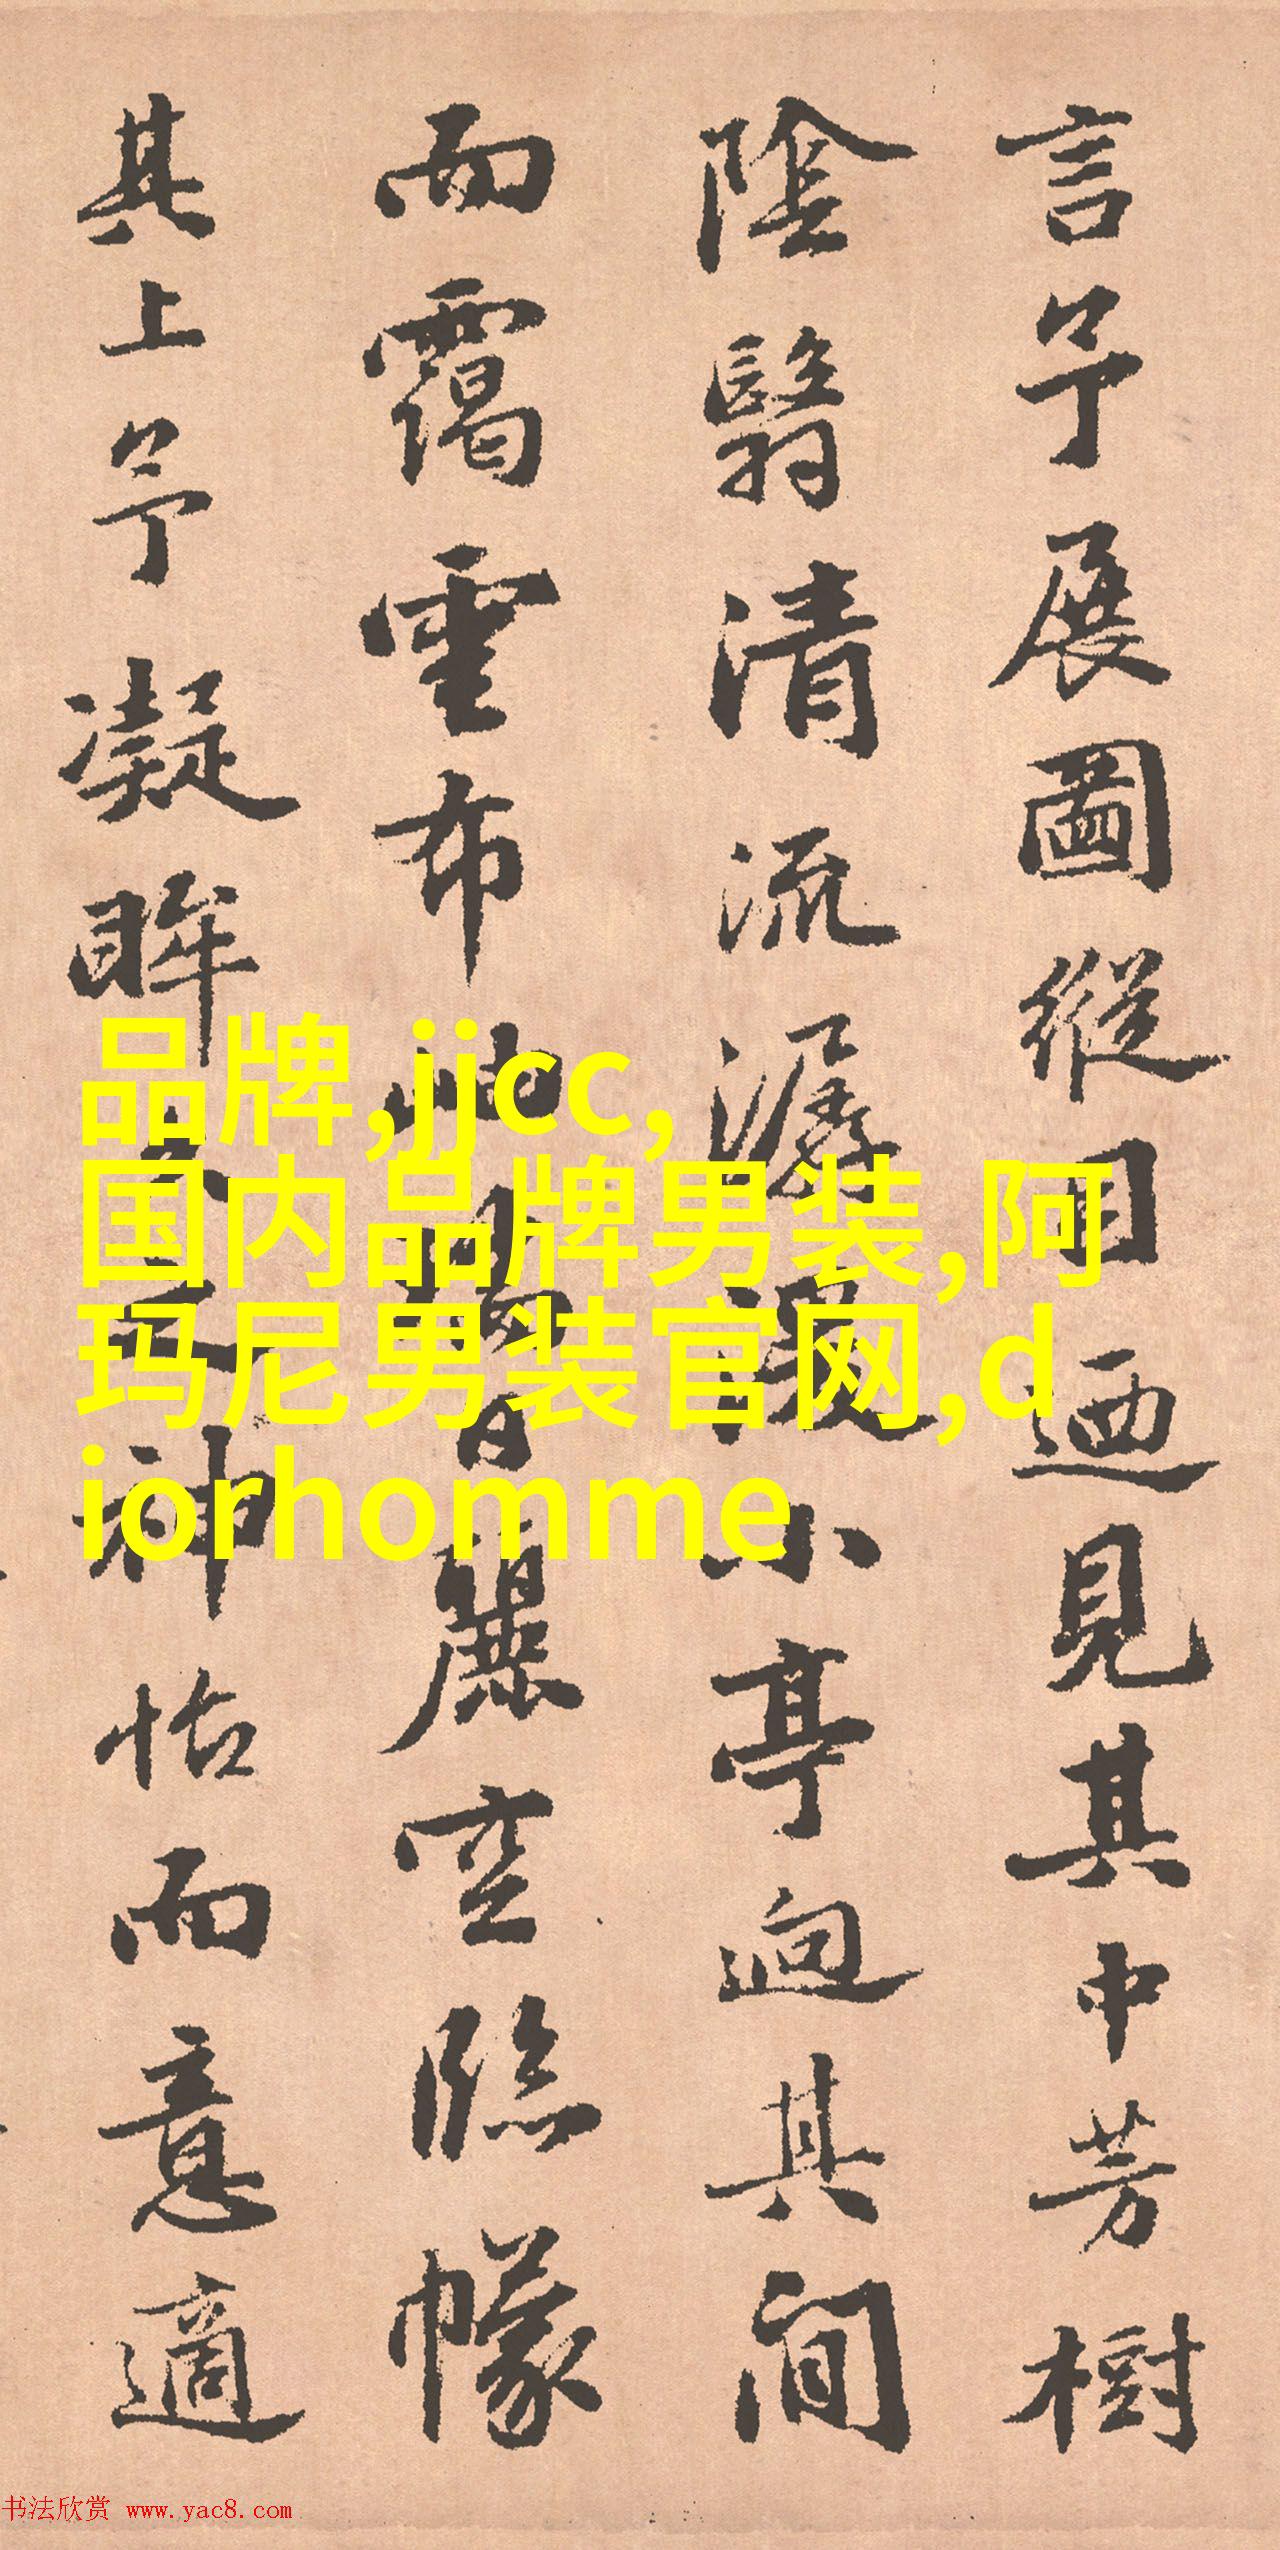 言予展圖縱目迺見其中芳樹
陰翳清流潺湲小亭迥其間
而靄雲布岫日麗空臨幪
其上予凝眸久之神怡而意適
品牌,jjcc,
国内品牌男装,阿
玛尼男装官网,d
iorhomme
书法欣赏 www.yac8.com